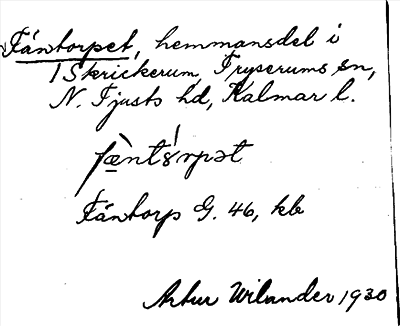 Fäntorpet, hemmansdel i
1 Skrickerum, Tryserums sn,
N. Tjusts hd, Kalmar l.
Fäntorp G. 46, kb
Artur Wilander 1930